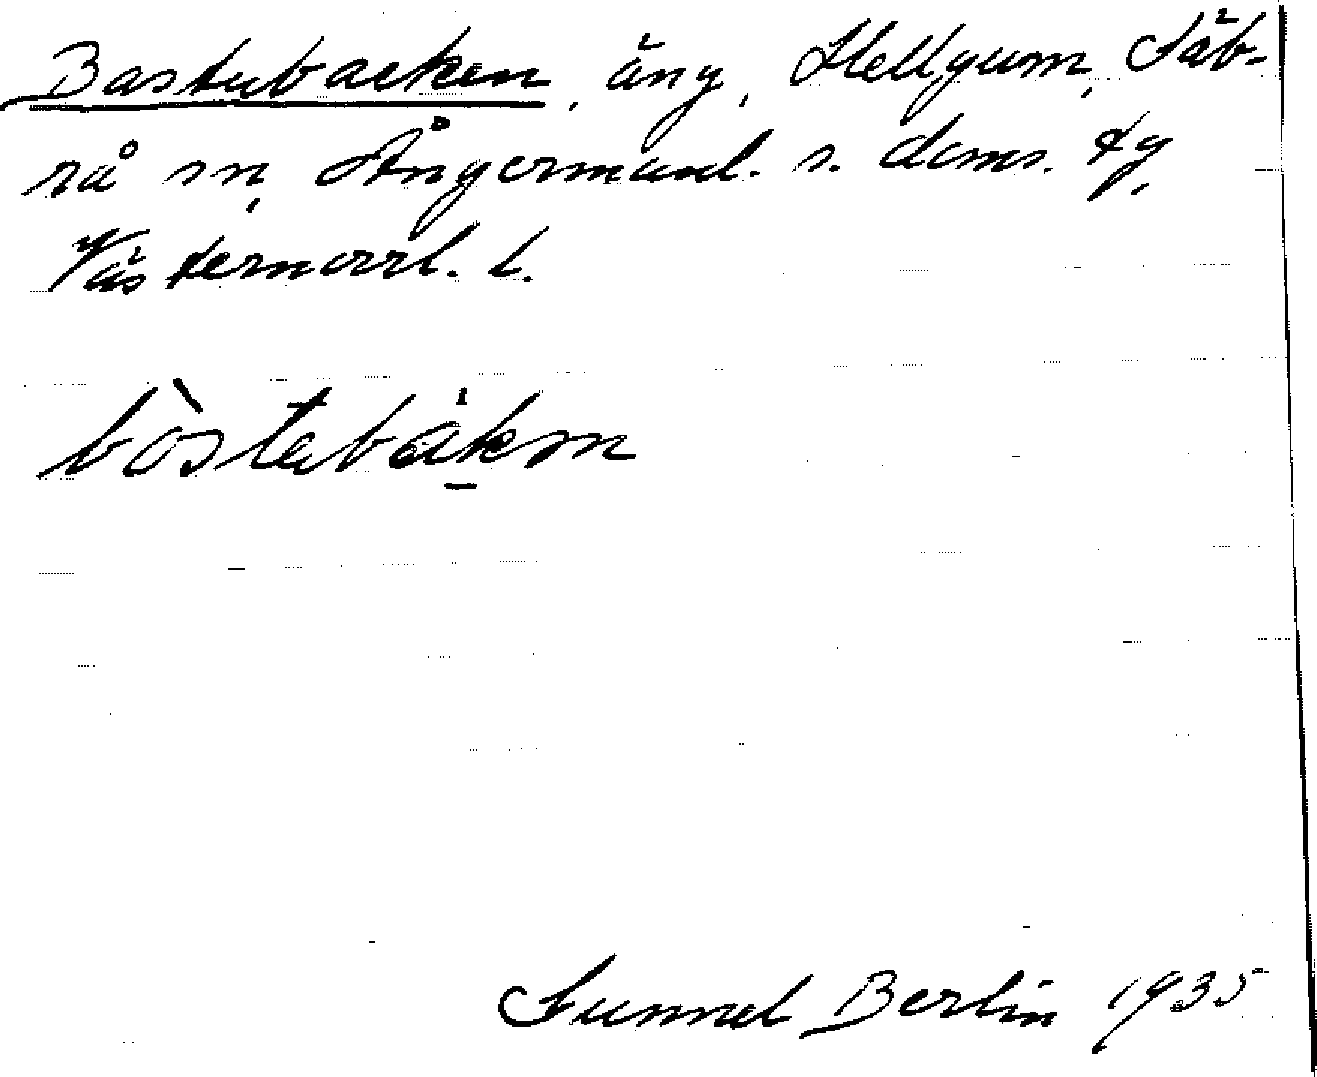 Bastubacken, äng, Hellgum, Säb-
rå sn, Ångermanl. s. doms. tg,
Västernorrl. l.
bòstebákm
Gunnel Berlin 1935